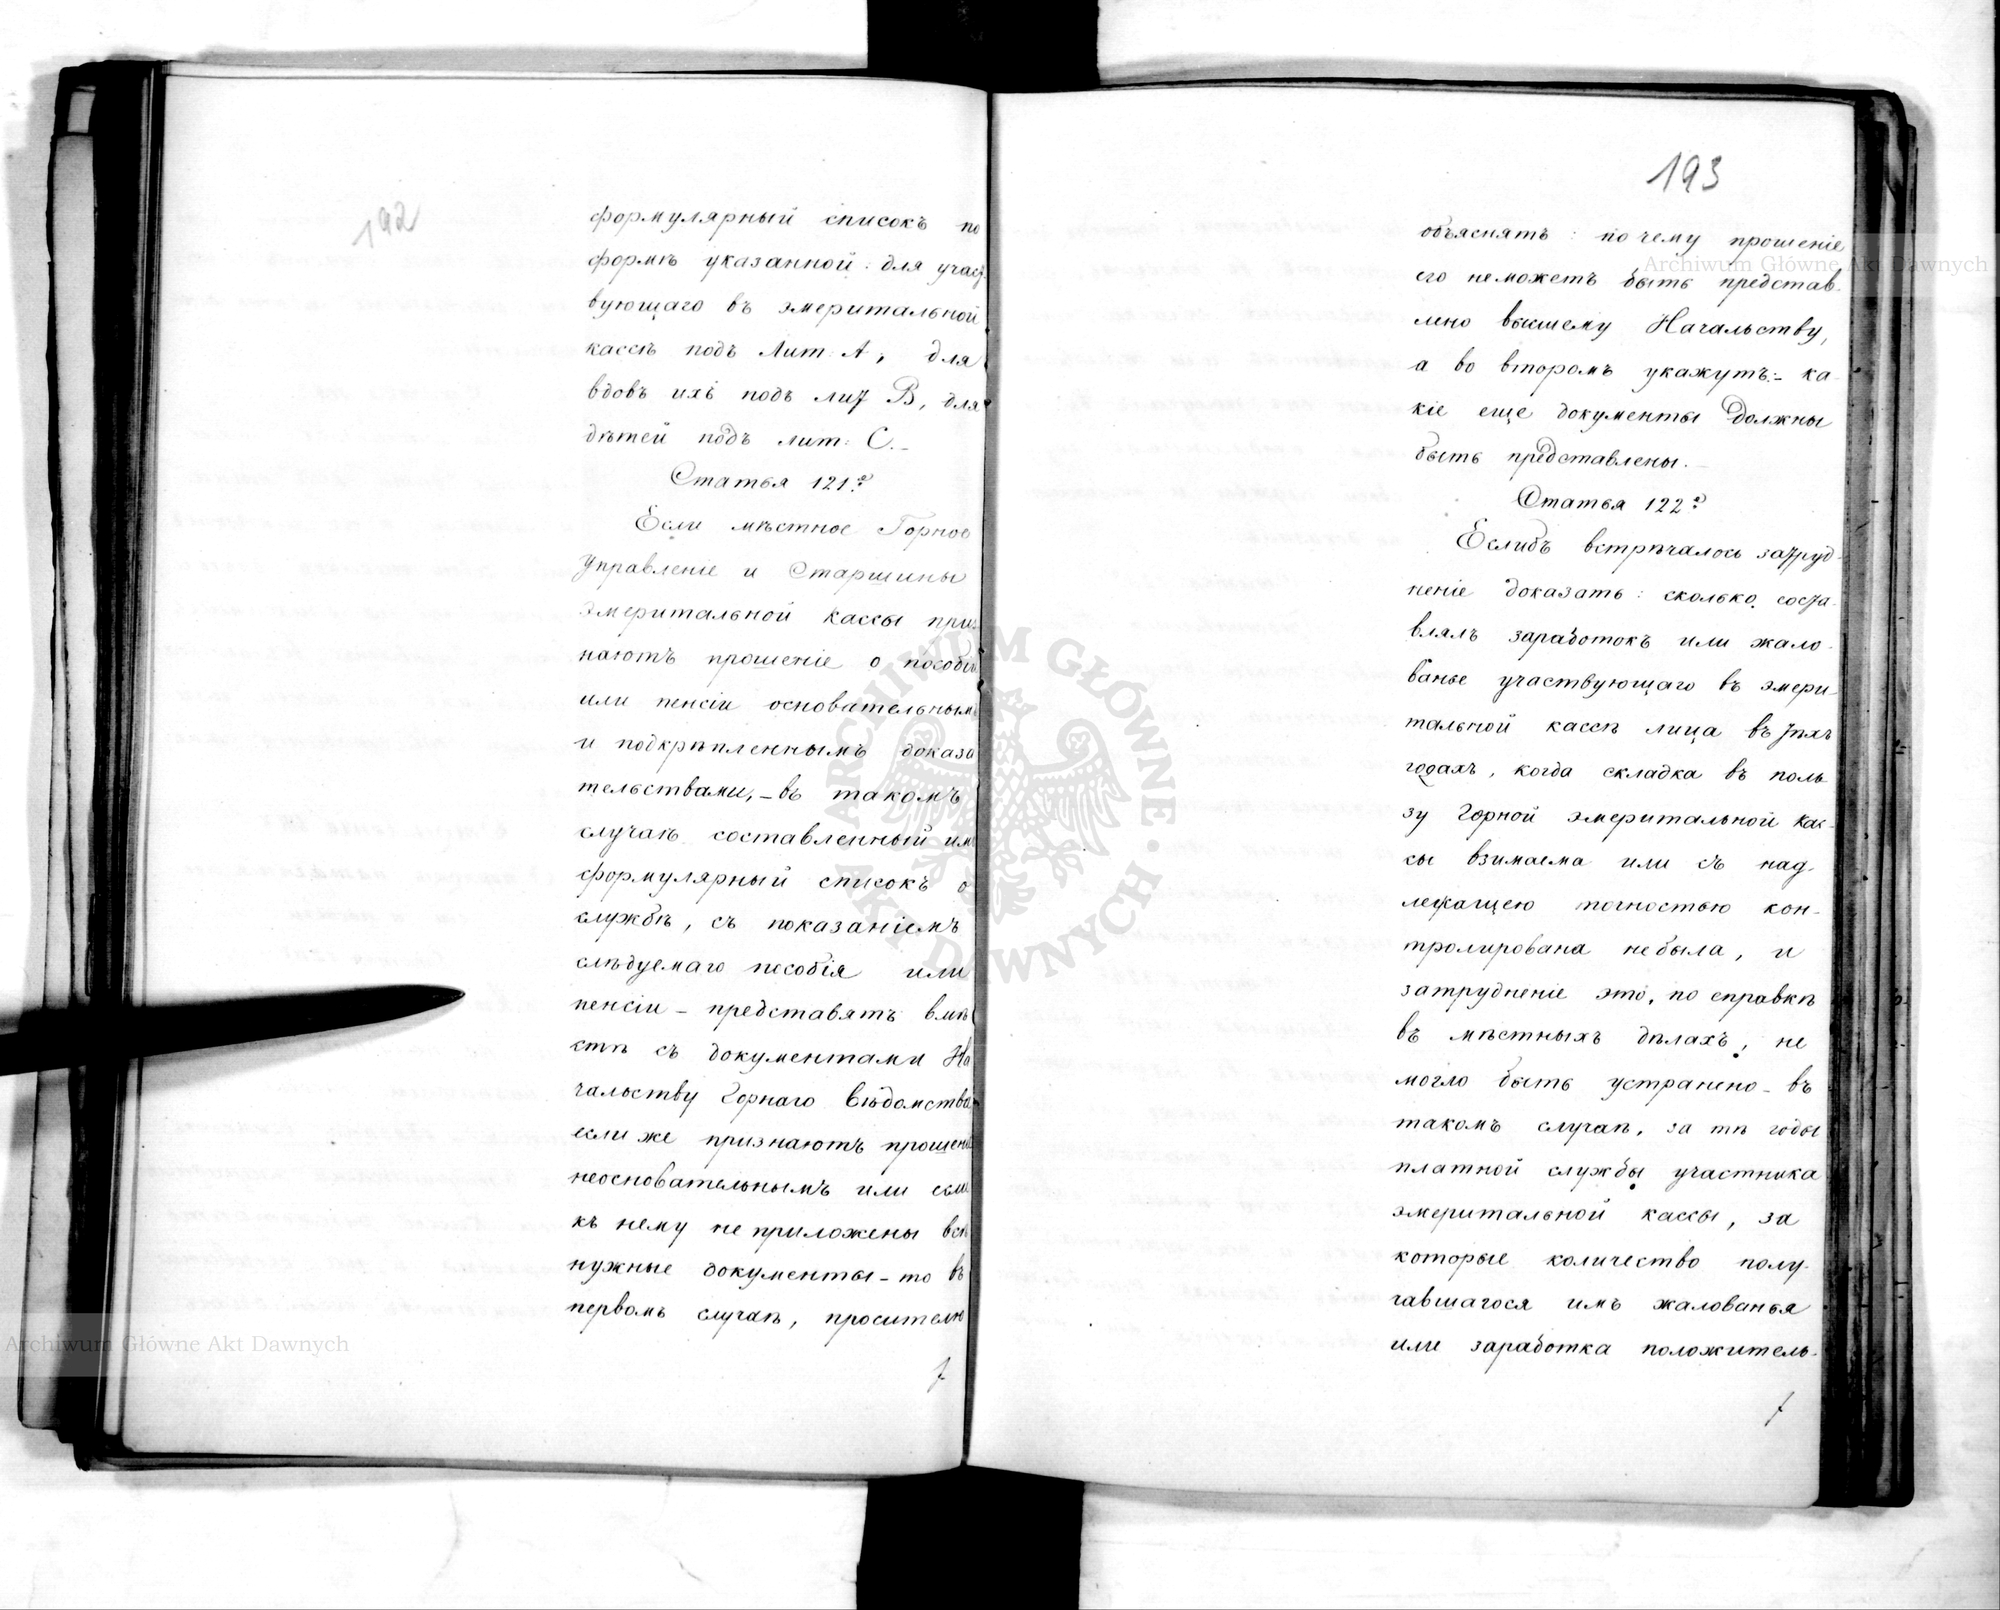 192
формулярный списокъ по
формѣ указанной: для участ-
вующаго въ эмеритальной
кассѣ подъ Лит: А, для
вдовъ ихъ подъ лит В, для
дѣтей подъ лит: С.-
Статья 121.ª
Если мѣстное Горное
Управленіе и Старшины
эмеритальной кассы приз-
наютъ прошеніе о пособіи
или пенсіи основательнымъ
и подкрѣпленнымъ доказа
тельствами,-въ такомъ
случаѣ составленный ими
формулярный списокъ о
службѣ, съ показаніемъ
слѣдуемаго пособія или
пенсіи - представятъ вмѣ
стѣ съ документами На
чальству Горнаго Вѣдомства
если же признаютъ прошеніе
неосновательнымъ или если
къ нему не приложены всѣ
нужные документы - то въ
первомъ случаѣ, просителю
193
объяснятъ: почему прошеніе
его неможетъ быть представ-
лено высшему Начальству,
а во второмъ укажутъ:- ка-
кіе еще документы должны
быть представлены.-
Статья 122.ª
Еслибъ встрѣчалось затруд-
неніе доказать: сколько соста-
влялъ заработокъ или жало-
ванье участвующаго въ эмери-
тальной кассѣ лица въ тѣхъ
годахъ, когда складка въ поль-
зу Горной эмеритальной кас-
сы взимаема или съ над-
лежащею точностью кон-
тролирована небыла, и
затрудненіе это, по справкѣ
въ мѣстныхъ дѣлахъ, не
могло быть устранено - въ
такомъ случаѣ, за тѣ годы
платной службы участника
эмеритальной кассы, за
которые количество полу-
чавшагося имъ жалованья
или заработка положитель-
Archiwum Główne Akt Dawnych
Archiwum Główne Akt Dawnych
ARCHIWUM GŁÓWNE AKT DAWNYCH